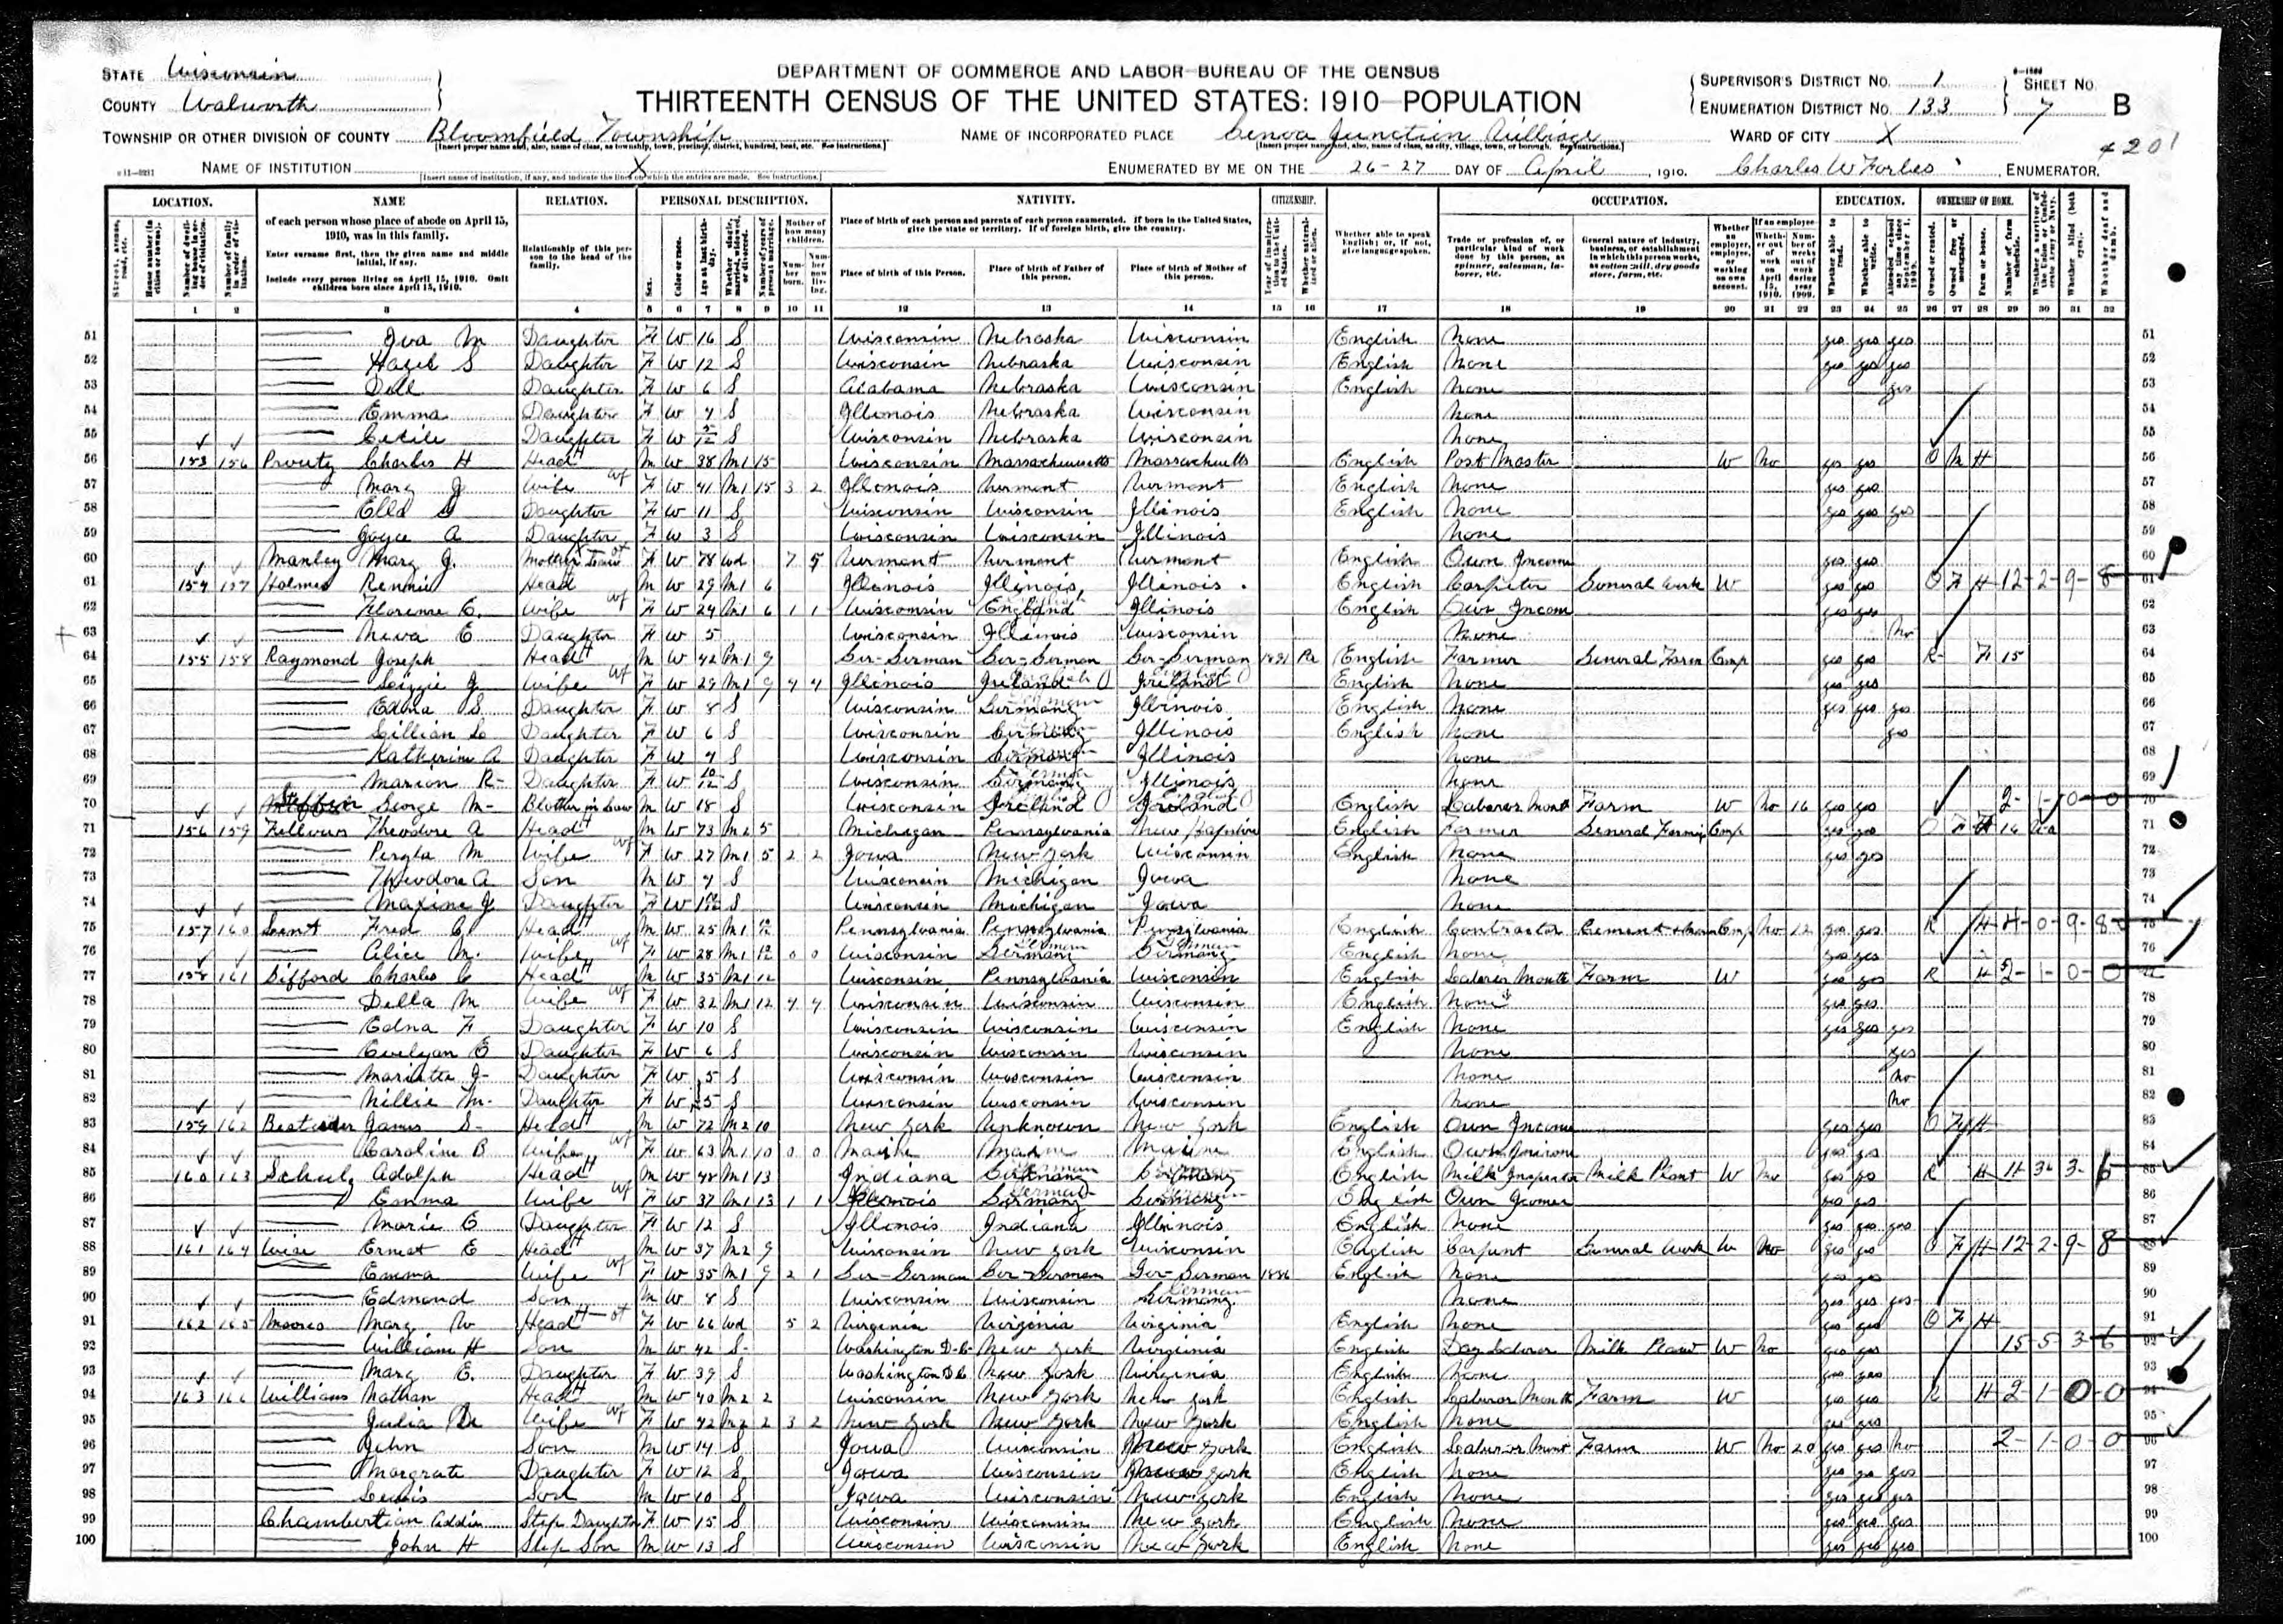 STATE Wisconsin
COUNTY Walworth
DEPARTMENT OF COMMERCE AND LABOR—BUREAU OF THE CENSUS
THIRTEENTH CENSUS OF THE UNITED STATES: 1910—POPULATION
SUPERVISOR'S DISTRICT No. 1 SHEET No.
ENUMERATION DISTRICT No. 133 7 B
TOWNSHIP OR OTHER DIVISION OF COUNTY Bloomfield Township NAME OF INCORPORATED PLACE Genoa Junction Village WARD OF CITY X
NAME OF INSTITUTION X ENUMERATED BY ME ON THE 26-27 DAY OF April, 1910. Charles W Forbes, ENUMERATOR.
LOCATION. NAME RELATION. PERSONAL DESCRIPTION. NATIVITY. CITIZENSHIP. OCCUPATION. EDUCATION. OWNERSHIP OF HOME.
of each person whose place of abode on April 15, 1910, was in this family.
Enter surname first, then the given name and middle initial, if any.
Include every person living on April 15, 1910. Omit children born since April 15, 1910.
Relationship of this person to the head of the family.
Place of birth of each person and parents of each person enumerated. If born in the United States, give the state or territory. If of foreign birth, give the country.
Place of birth of this Person. Place of birth of Father of this person. Place of birth of Mother of this person.
Whether able to speak English; or, if not, give language spoken.
1 2 3 4 5 6 7 8 9 10 11 12 13 14 15 16 17 18 19 20 21 22 23 24 25 26 27 28 29 30 31 32
51 Iva M Daughter F W 16 S Wisconsin Nebraska Wisconsin English None yes yes yes 51
52 Hazel S Daughter F W 12 S Wisconsin Nebraska Wisconsin English None yes yes yes 52
53 Doll Daughter F W 6 S Alabama Nebraska Wisconsin English None yes 53
54 Emma Daughter F W 4 S Illinois Nebraska Wisconsin None 54
55 Cecile Daughter F W 5/12 S Wisconsin Nebraska Wisconsin None 55
56 153 156 Prouty Charles H Head M W 38 M1 15 Wisconsin Massachusetts Massachusetts English Post Master W No yes yes O M H
57 Mary J Wife F W 41 M1 15 3 2 Illinois Vermont Vermont English None yes yes 57
58 Ella Daughter F W 11 S Wisconsin Wisconsin Illinois English None yes yes yes 58
59 Joyce A Daughter F W 3 S Wisconsin Wisconsin Illinois None 59
60 Manley Mary J. Mother in Law F W 78 Wd 7 5 Vermont Vermont Vermont English Own Income yes yes 60
61 154 157 Holmes Rennie Head M W 29 M1 6 Illinois Illinois Illinois English Carpenter General Work W yes yes O F H 12-2-9-8
62 Florence E. Wife F W 24 M1 6 1 1 Wisconsin England Illinois English Own Income yes yes 62
63 Neva E Daughter F W 5 Wisconsin Illinois Wisconsin None no 63
64 155 158 Raymond Joseph Head M W 42 M1 9 Ger-German Ger-German Ger-German 1891 Pa English Farmer General Farm Emp yes yes R F 15 64
65 Lizzie J Wife F W 29 M1 9 4 4 Illinois Ireland Ireland English None yes yes 65
66 Edna S Daughter F W 8 S Wisconsin Germany Illinois English None yes yes yes 66
67 Lillian Daughter F W 6 S Wisconsin Germany Illinois English None yes 67
68 Katherine A Daughter F W 4 S Wisconsin Germany Illinois None 68
69 Marion R- Daughter F W 10/12 S Wisconsin Germany Illinois None 69
70 Steffen George M- Brother in Law M W 18 S Wisconsin Ireland Ireland English Laborer Mont Farm W No 16 yes yes 2-1-0-0
71 156 159 Fellows Theodore A Head M W 73 M2 5 Michigan Pennsylvania New Hampshire English Farmer General Farming Emp yes yes O F 16 71
72 Pergla M Wife F W 27 M1 5 2 2 Iowa New York Wisconsin English None yes yes 72
73 Theodore A Son M W 4 S Wisconsin Michigan Iowa None 73
74 Maxine J Daughter F W S Wisconsin Michigan Iowa None 74
75 157 160 Fred C Head M W 25 M1 Pennsylvania Pennsylvania Pennsylvania English Contractor Cement Emp No 12 yes yes R H 4-0-9-8
76 Alice M. Wife F W 28 M1 0 0 Wisconsin Germany Germany English None yes yes 76
77 158 161 Gifford Charles C Head M W 35 M1 12 Wisconsin Pennsylvania Wisconsin English Laborer Month Farm W yes yes R H 2-1-0-0
78 Della M Wife F W 32 M1 12 4 4 Wisconsin Wisconsin Wisconsin English None yes yes 78
79 Edna F Daughter F W 10 S Wisconsin Wisconsin Wisconsin English None yes yes yes 79
80 Evelyan E Daughter F W 6 S Wisconsin Wisconsin Wisconsin None yes 80
81 Marietta J- Daughter F W 5 S Wisconsin Wisconsin Wisconsin None no 81
82 Nillie M- Daughter F W S Wisconsin Wisconsin Wisconsin None no 82
83 159 162 James S- Head M W 72 M2 10 New York Unknown New York English Own Income yes yes O F H 83
84 Caroline B Wife F W 63 M1 10 0 0 Maine Maine Maine English Own Income yes yes 84
85 160 163 Schulz Adolph Head M W 48 M1 13 Indiana Germany Germany English Milk Inspector Milk Plant W No yes yes R H
86 Emma Wife F W 37 M1 13 1 1 Illinois Germany Germany English Own Income yes yes 86
87 Marie E Daughter F W 12 S Illinois Indiana Illinois English None yes yes yes 87
88 161 164 Wise Ernest E Head M W 37 M2 9 Wisconsin New York Wisconsin English Carpent General Work W No yes yes O F H 12-2-9-8
89 Emma Wife F W 35 M1 9 2 1 Ger-German Ger-German Ger-German 1886 English None yes yes 89
90 Edmond Son M W 8 S Wisconsin Wisconsin Germany None yes yes yes 90
91 162 165 Moores Mary W Head F W 66 Wd 5 2 Virginia Virginia Virginia English None yes yes O F H 91
92 William H Son M W 42 S- Washington D-C- New York Virginia English Day Laborer Milk Plant W No yes yes 15-5-3-6
93 Mary E. Daughter F W 39 S Washington DC New York Virginia English None yes yes 93
94 163 166 Williams Nathan Head M W 40 M2 2 Wisconsin New York New York English Laborer Month Farm W yes yes R H 2-1-0-0
95 Julia Wife F W 42 M2 2 3 2 New York New York New York English None yes yes 95
96 John Son M W 14 S Iowa Wisconsin New York English Laborer Mont Farm W No 20 yes yes No 2-1-0-0
97 Margrate Daughter F W 12 S Iowa Wisconsin New York English None yes yes yes 97
98 Lewis Son M W 10 S Iowa Wisconsin New York English None yes yes yes 98
99 Chambertian Addie Step Daughter F W 15 S Wisconsin Wisconsin New York English None yes yes yes 99
100 John H Step Son M W 13 S Wisconsin Wisconsin New York English None yes yes yes 100